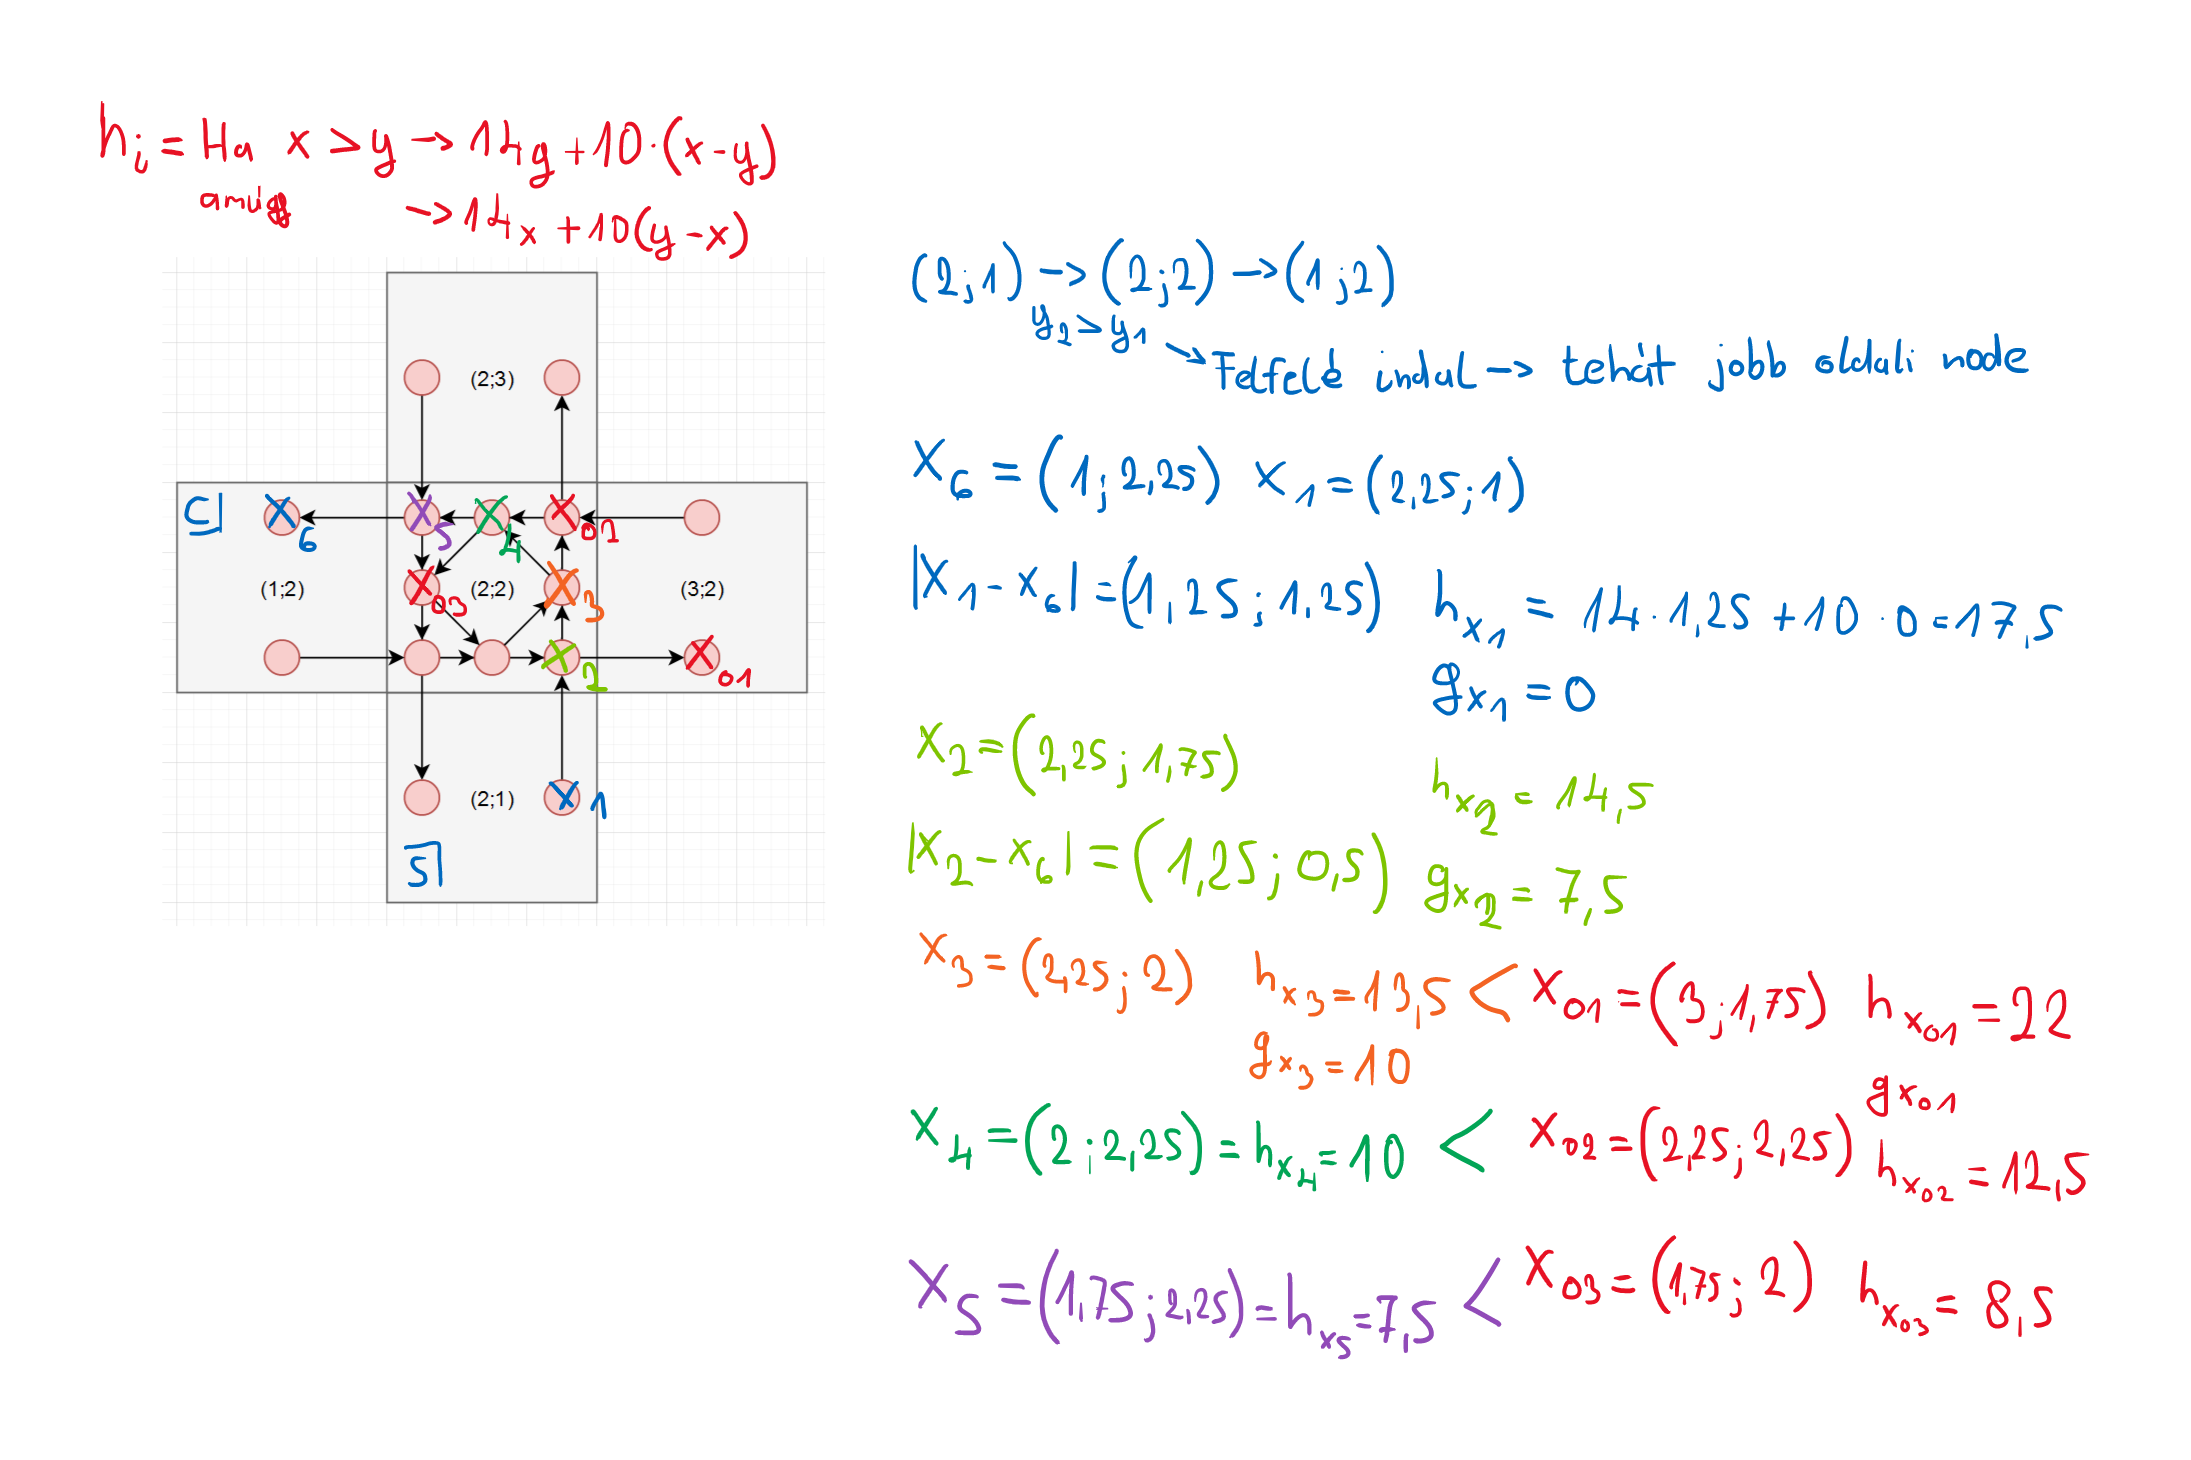 h_i = Ha x > y → 14y + 10·(x-y)
→ 14x + 10(y-x)
(2;3)
C|
6
5
4
02
(1;2)
03
(2;2)
3
(3;2)
2
01
(2;1)
1
S|
(2;1) → (2;2) → (1;2)
y₂ > y₁
→ Felfelé indul → tehát jobb oldali node
X₆ = (1; 2,25) X₁ = (2,25; 1)
|X₁ - X₆| = (1,25; 1,25) h_x₁ = 14·1,25 + 10·0 = 17,5
g_x₁ = 0
X₂ = (2,25; 1,75)
h_x₂ = 14,5
|X₂ - X₆| = (1,25; 0,5) g_x₂ = 7,5
X₃ = (2,25; 2) h_x₃ = 13,5 < X₀₁ = (3; 1,75) h_x₀₁ = 22
g_x₃ = 10
g_x₀₁
X₄ = (2; 2,25) = h_x₄ = 10 < X₀₂ = (2,25; 2,25) h_x₀₂ = 12,5
X₅ = (1,75; 2,25) = h_x₅ = 7,5 < X₀₃ = (1,75; 2) h_x₀₃ = 8,5